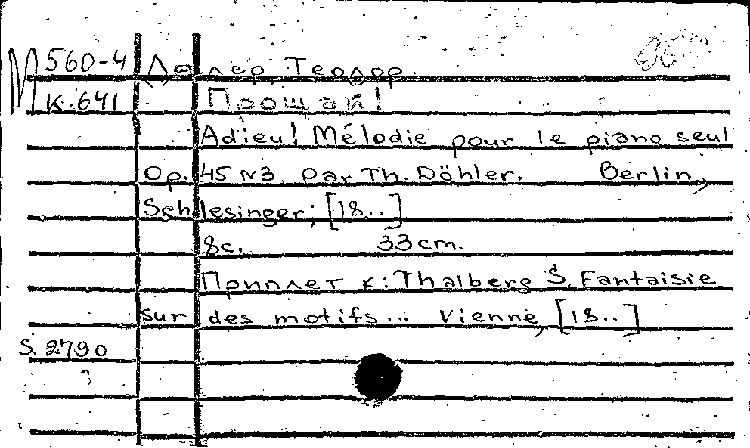 М 560-4 Делер Теодор.
К.641 Прощай!
Adieu! Mélodie pour le piano seul
Op. 45 N3 par Th. Döhler. Berlin,
Schlesinger; [18..]
8c. 33cm.
Приплет к: Thalberg S. Fantaisie
sur des motifs... Vienne, [18..]
S. 2790